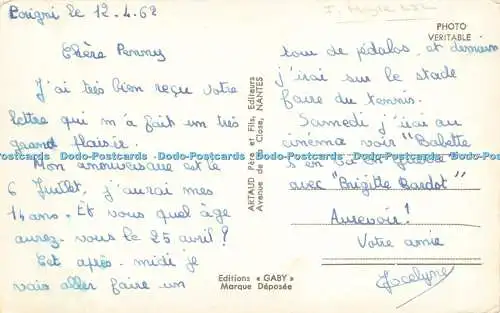 Porigni le 12.4.62
Chère Penny
J'ai très bien reçu votre
lettre qui m'a fait un très
grand plaisir.
Mon anniversaire est le
6 Juillet, j'aurai mes
14 ans. Et vous quel âge
aurez-vous le 25 avril?
Cet après-midi je
vais aller faire un
ARTAUD Père et Fils, Editeurs
Avenue de la Close, NANTES
Editions « GABY »
Marque Déposée
PHOTO
VERITABLE
tour de pédalos, et demain
j'irai sur le stade
faire du tennis.
Samedi j'irai au
cinéma voir "Babette
s'en va en guerre
avec "Brigitte Bardot"
Aurevoir!
Votre amie
Jocelyne
Dodo-Postcards Dodo-Postcards Dodo-Postcards Dodo-Postcards Dodo-Postcards